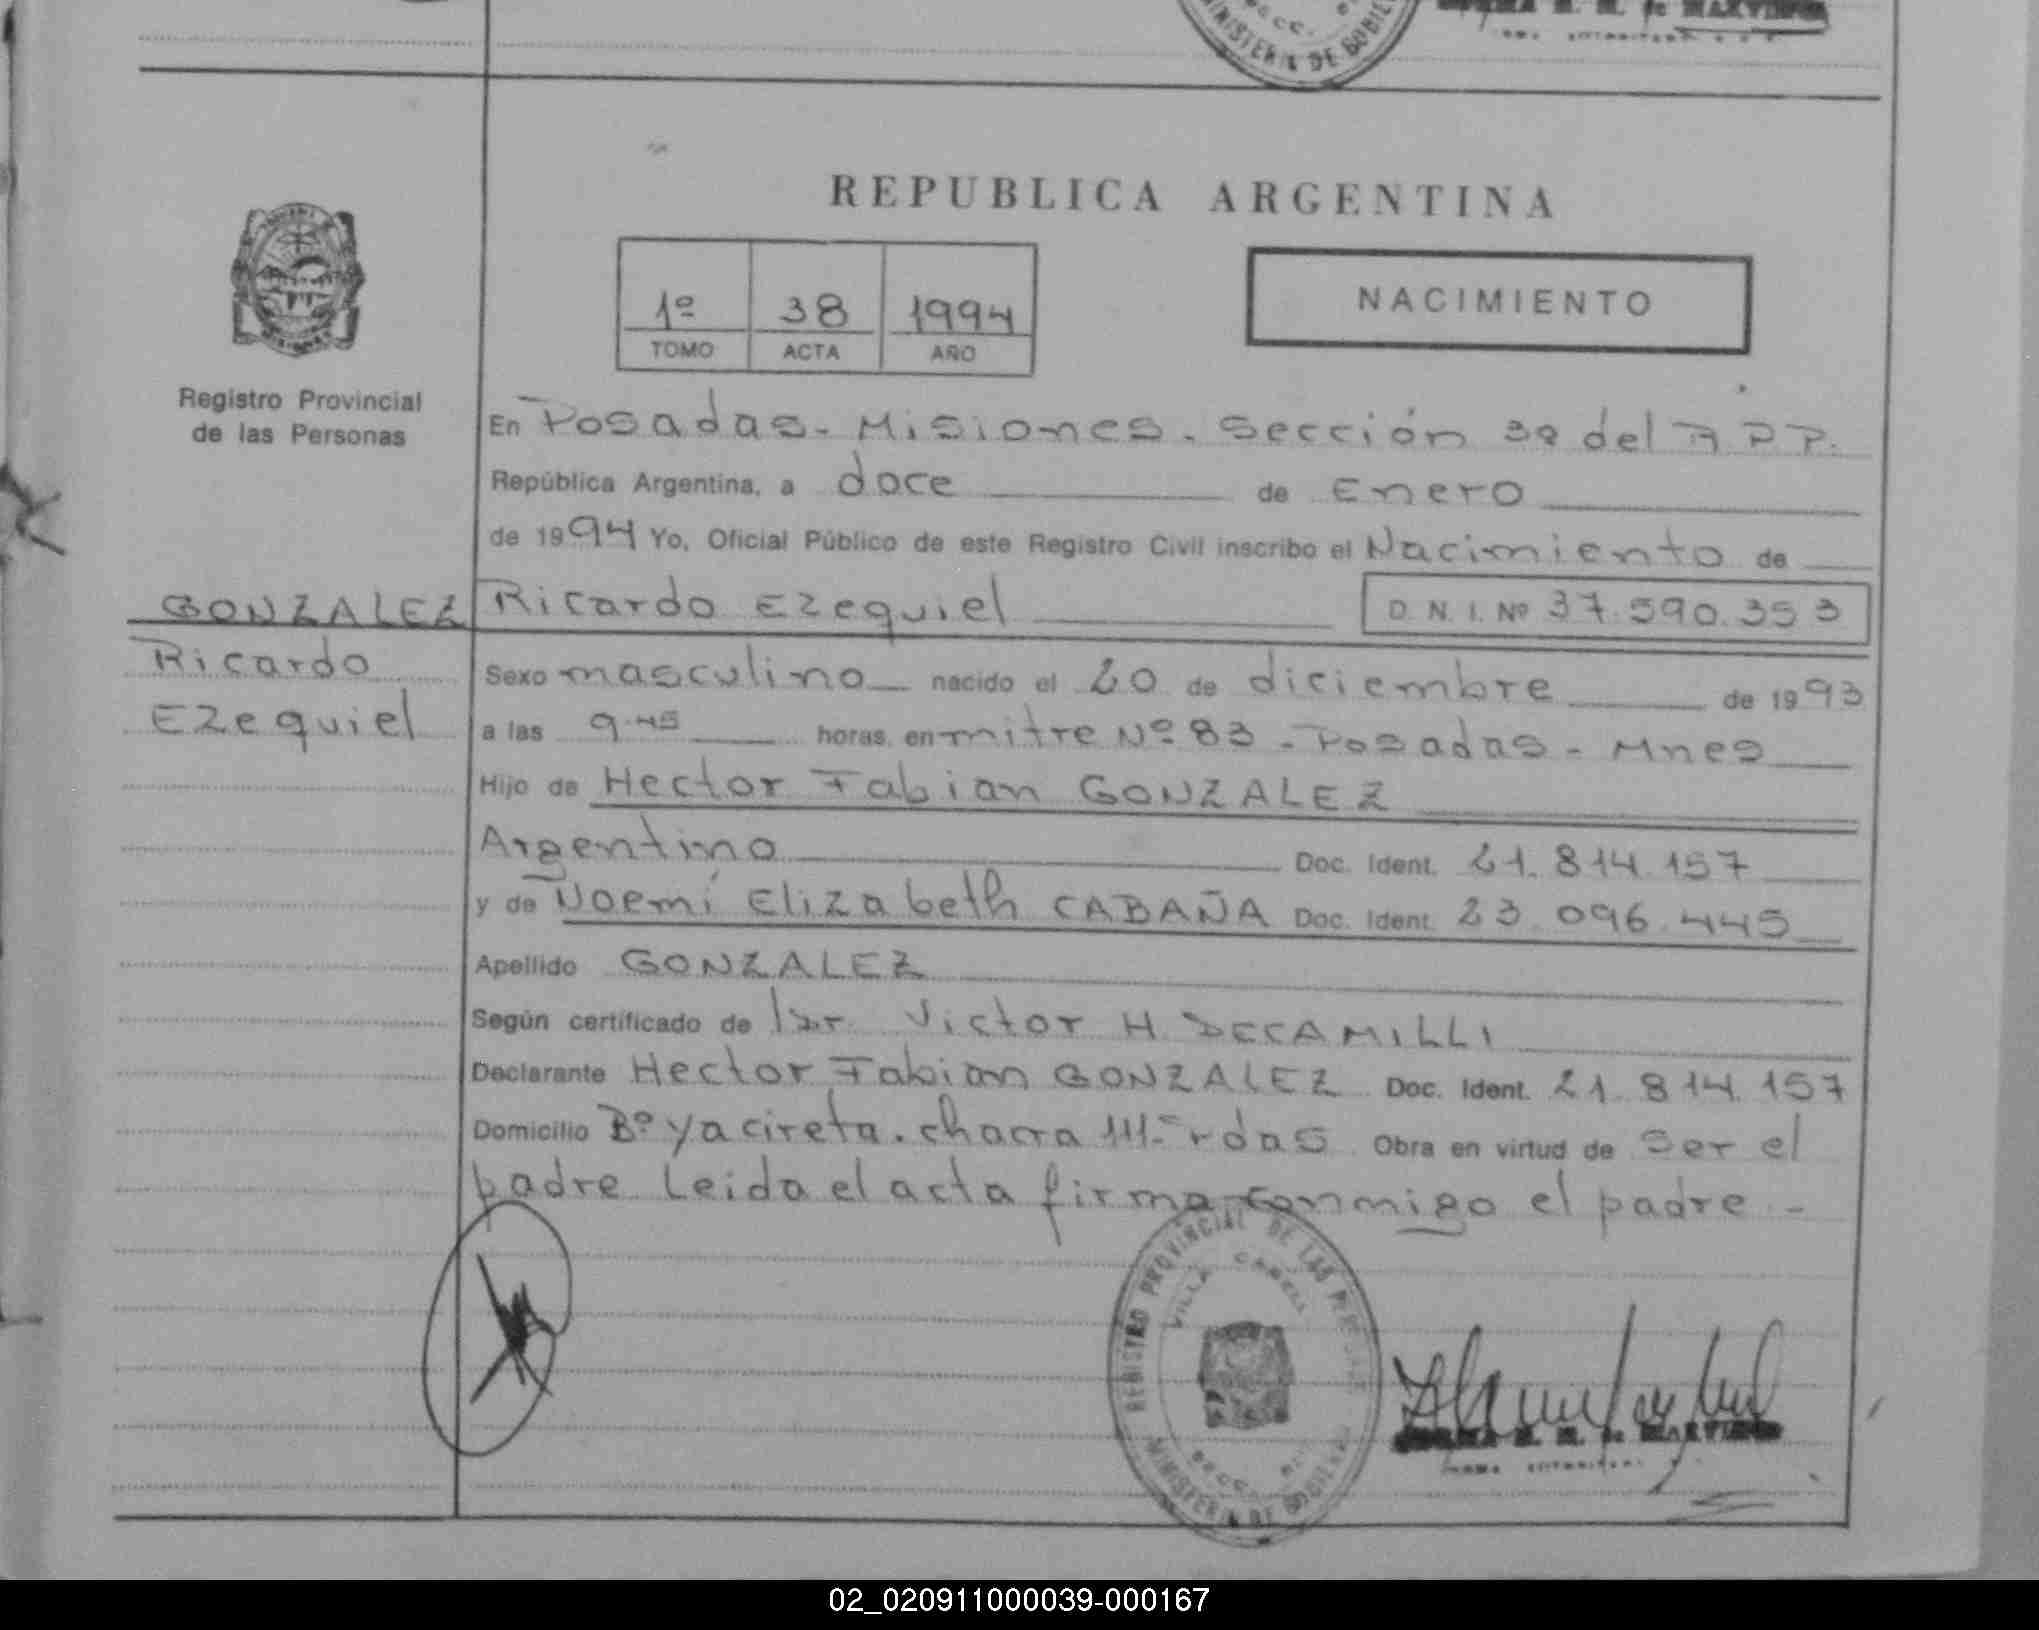 MINISTERIO DE GOBIE
REPUBLICA ARGENTINA
1º 38 1994
TOMO ACTA AÑO
NACIMIENTO
Registro Provincial
de las Personas
En Posadas - Misiones - Sección 3º del R P P.
República Argentina, a doce de Enero
de 1994 Yo, Oficial Público de este Registro Civil inscribo el Nacimiento de
GONZALEZ Ricardo Ezequiel D. N. I. Nº 37.590.353
Ricardo
Ezequiel
Sexo masculino nacido el 20 de diciembre de 1993
a las 9.45 horas, en mitre Nº 83 - Posadas - Mnes
Hijo de Hector Fabian GONZALEZ
Argentino Doc. Ident. 21.814.157
y de Noemí Elizabeth CABAÑA Doc. Ident. 23.096.445
Apellido GONZALEZ
Según certificado de Dr. Victor H. DECAMILLI
Declarante Hector Fabian GONZALEZ Doc. Ident. 21.814.157
Domicilio Bº Yacireta. chacra Obra en virtud de ser el
padre Leida el acta firma conmigo el padre -
REGISTRO PROVINCIAL DE LAS PERSONAS
VILLA CABELL
MINISTERIO DE GOBIERNO
02_020911000039-000167